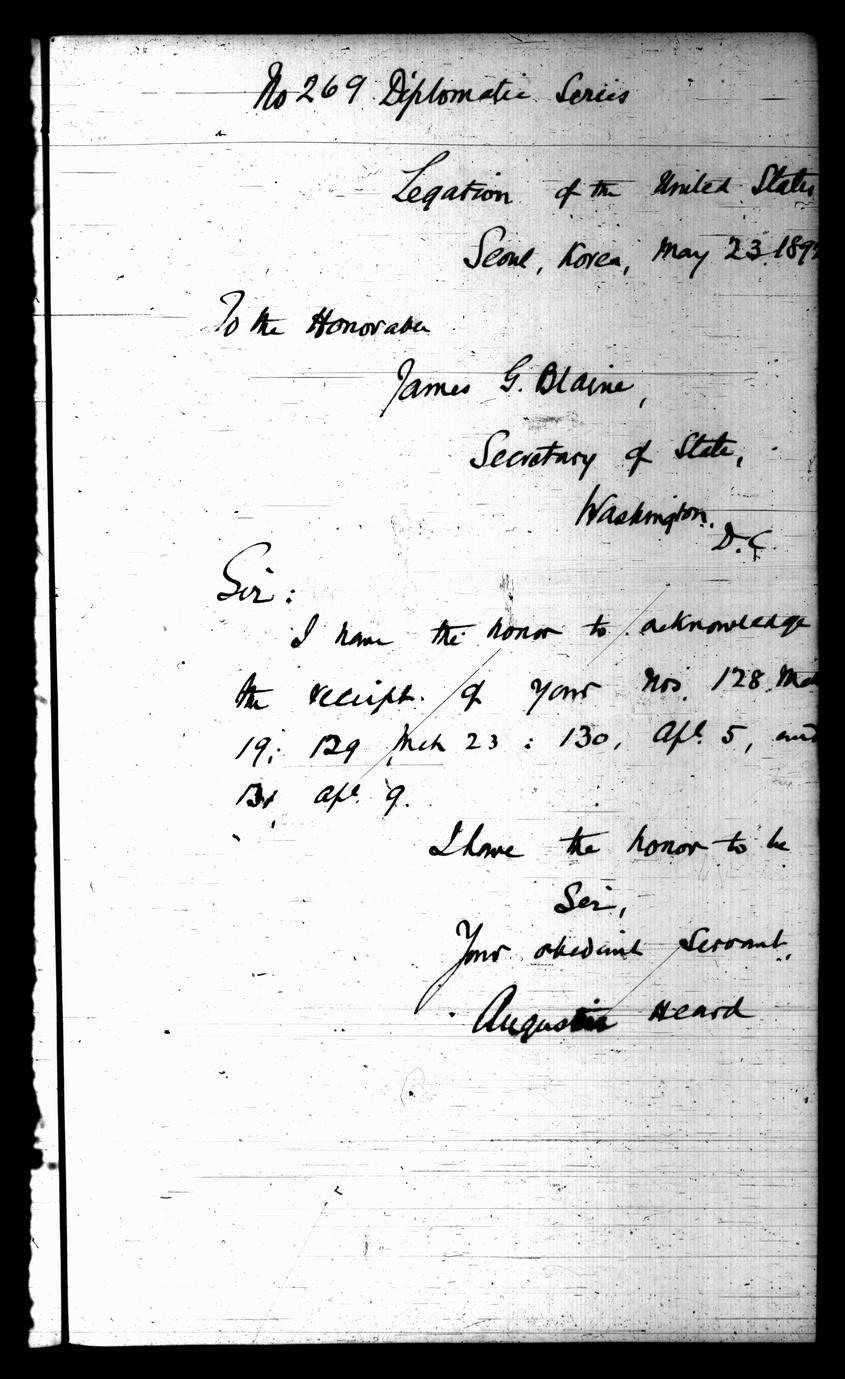 No 269 Diplomatic Series
Legation of the United States
Seoul, Korea, May 23 1892
To the Honorable
James G. Blaine,
Secretary of State,
Washington,
D.C.
Sir:
I have the honor to acknowledge
the receipt of your Nos. 128 Mch
19; 129 Mch 23; 130, Apl. 5, and
131 Apl. 9.
I have the honor to be
Sir,
Your obedient Servant,
Augustine Heard